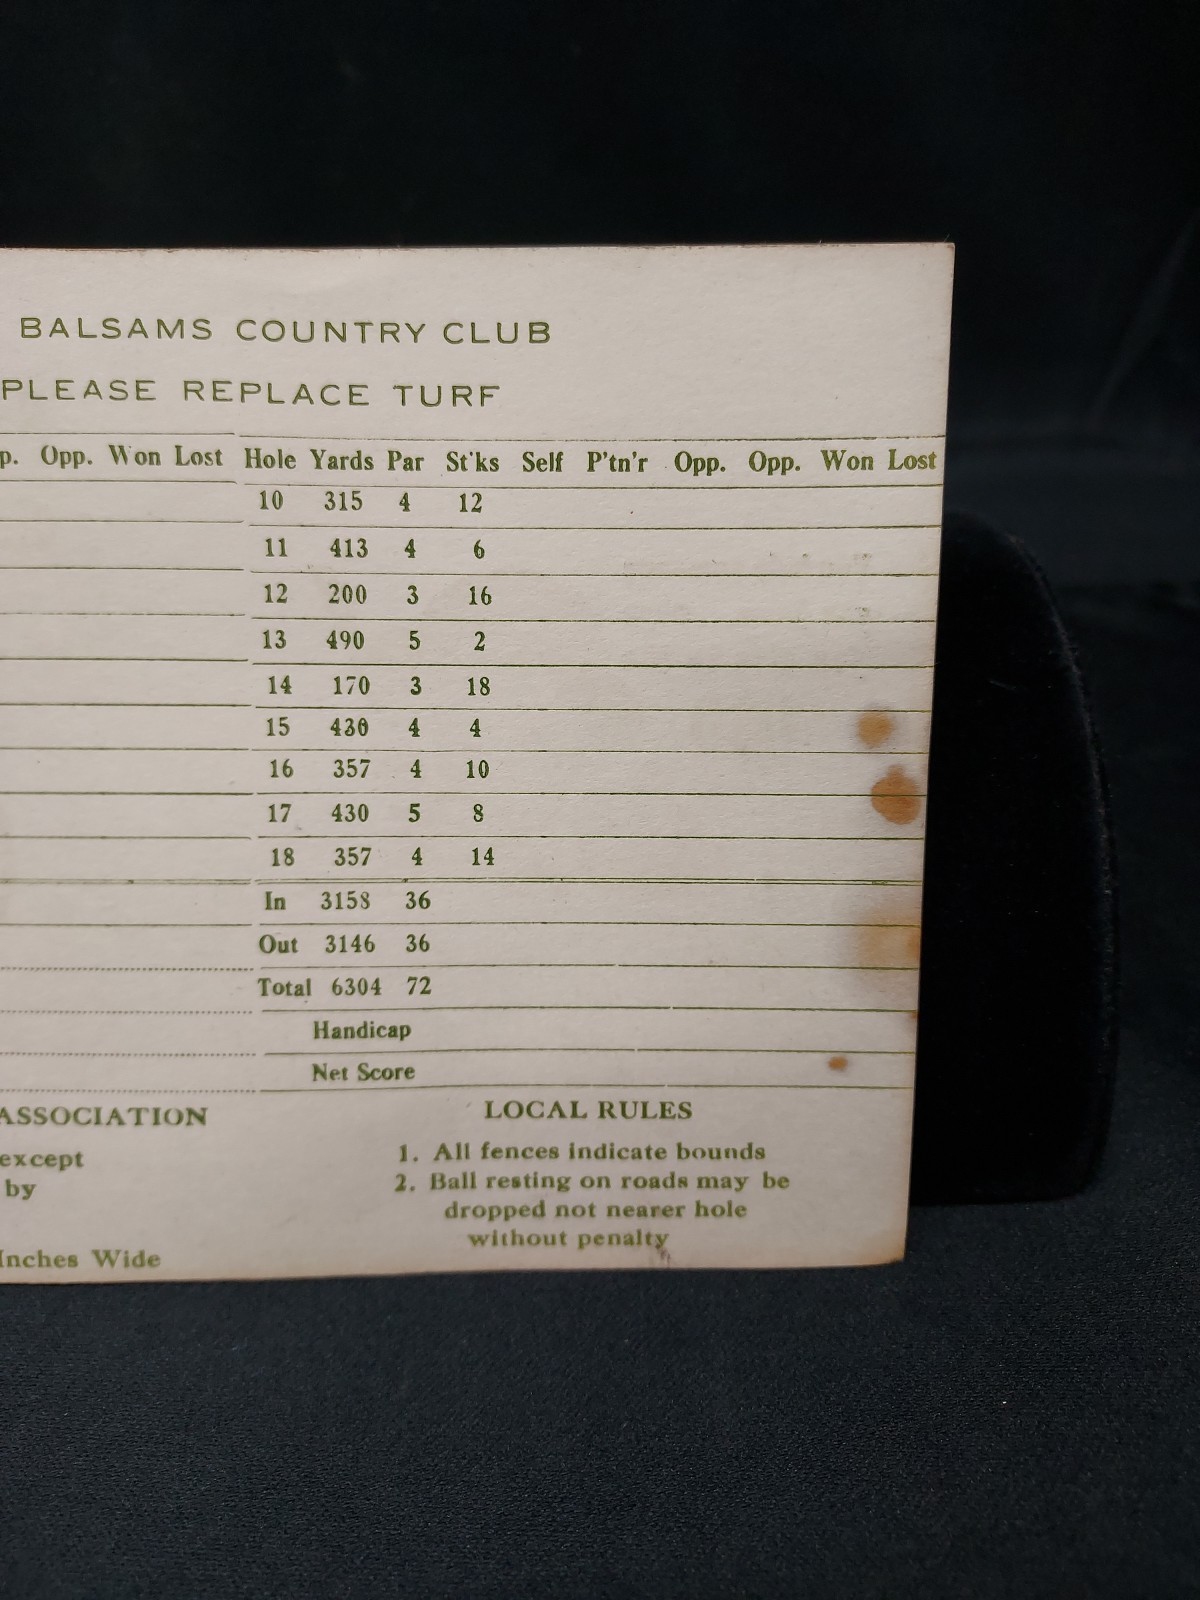 BALSAMS COUNTRY CLUB
PLEASE REPLACE TURF
p. Opp. Won Lost Hole Yards Par St'ks Self P'tn'r Opp. Opp. Won Lost
10 315 4 12
11 413 4 6
12 200 3 16
13 490 5 2
14 170 3 18
15 430 4 4
16 357 4 10
17 430 5 8
18 357 4 14
In 3158 36
Out 3146 36
Total 6304 72
Handicap
Net Score
ASSOCIATION
except
by
Inches Wide
LOCAL RULES
1. All fences indicate bounds
2. Ball resting on roads may be
dropped not nearer hole
without penalty